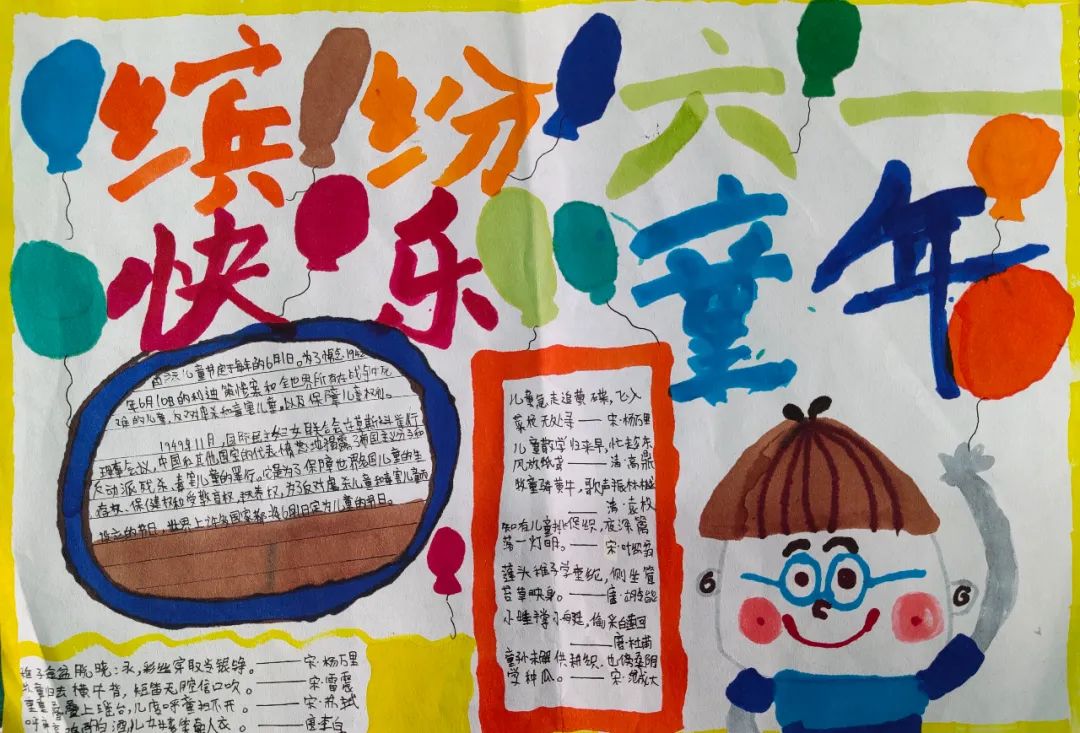 缤纷六一
快乐童年
国际儿童节定于每年的6月1日。为了悼念1942
年6月10日的利迪策惨案和全世界所有在战争中死
难的儿童,反对虐杀和毒害儿童,以及保障儿童权利。
1949年11月,国际民主妇女联合会在莫斯科举行
理事会议,中国和其他国家的代表愤怒地揭露了帝国主义分子和
反动派残杀、毒害儿童的罪行。它是为了保障世界各国儿童的生
存权、保健权和受教育权、抚养权,为了反对虐杀儿童和毒害儿童而
设立的节日,世界上许多国家都将6月1日定为儿童的节日。
儿童急走追黄蝶,飞入
菜花无处寻——宋·杨万里
儿童散学归来早,忙趁东
风放纸鸢——清·高鼎
牧童骑黄牛,歌声振林樾
——清·袁枚
知有儿童挑促织,夜深篱
落一灯明。——宋·叶绍翁
蓬头稚子学垂纶,侧坐莓
苔草映身。——唐·胡令能
小娃撑小艇,偷采白莲回
——唐·杜甫
童孙未解供耕织,也傍桑阴
学种瓜。——宋·范成大
稚子金盆脱晓冰,彩丝穿取当银铮。——宋·杨万里
牧童归去横牛背,短笛无腔信口吹。——宋·雷震
重重叠叠上瑶台,几度呼童扫不开。——宋·苏轼
呼童烹鸡酌白酒,儿女嬉笑牵人衣。——唐李白